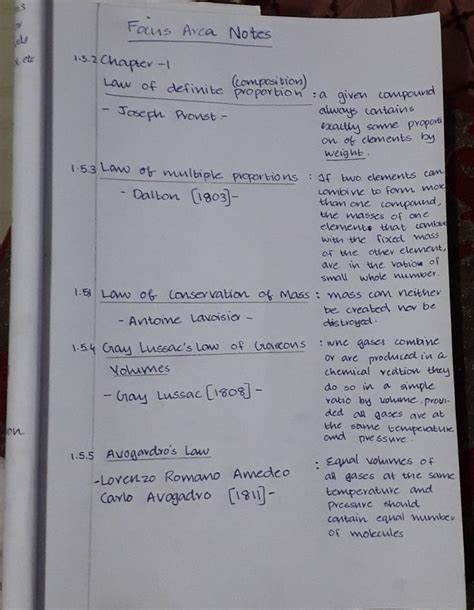 Focus Area Notes
1.5.2 Chapter -1
Law of definite (composition) proportion : a given compound
always contains
- Joseph Proust -
exactly same proporti
on of elements by
weight.
1.5.3 Law of multiple proportions : If two elements can
combine to form more
- Dalton [1803]-
than one compound,
the masses of one
elements that combine
with the fixed mass
of the other element,
are in the ratios of
small whole number.
1.51 Law of Conservation of Mass : mass can neither
be created nor be
- Antoine Lavoisier -
distroyed.
1.5.4 Gay Lussac's Law of Gaseous : whe gases combine
Volumes
or are produced in a
chemical reation they
- Gay Lussac [1808] -
do so in a simple
ratio by volume. provi
ded all gases are at
the same temperature
and pressure.
1.5.5 Avogandro's Law
: Equal volumes of
- Lorenzo Romano Amedeo
all gases at the same
Carlo Avogadro [1811]-
temperature and
pressure should
contain equal number
of molecules
etc
on